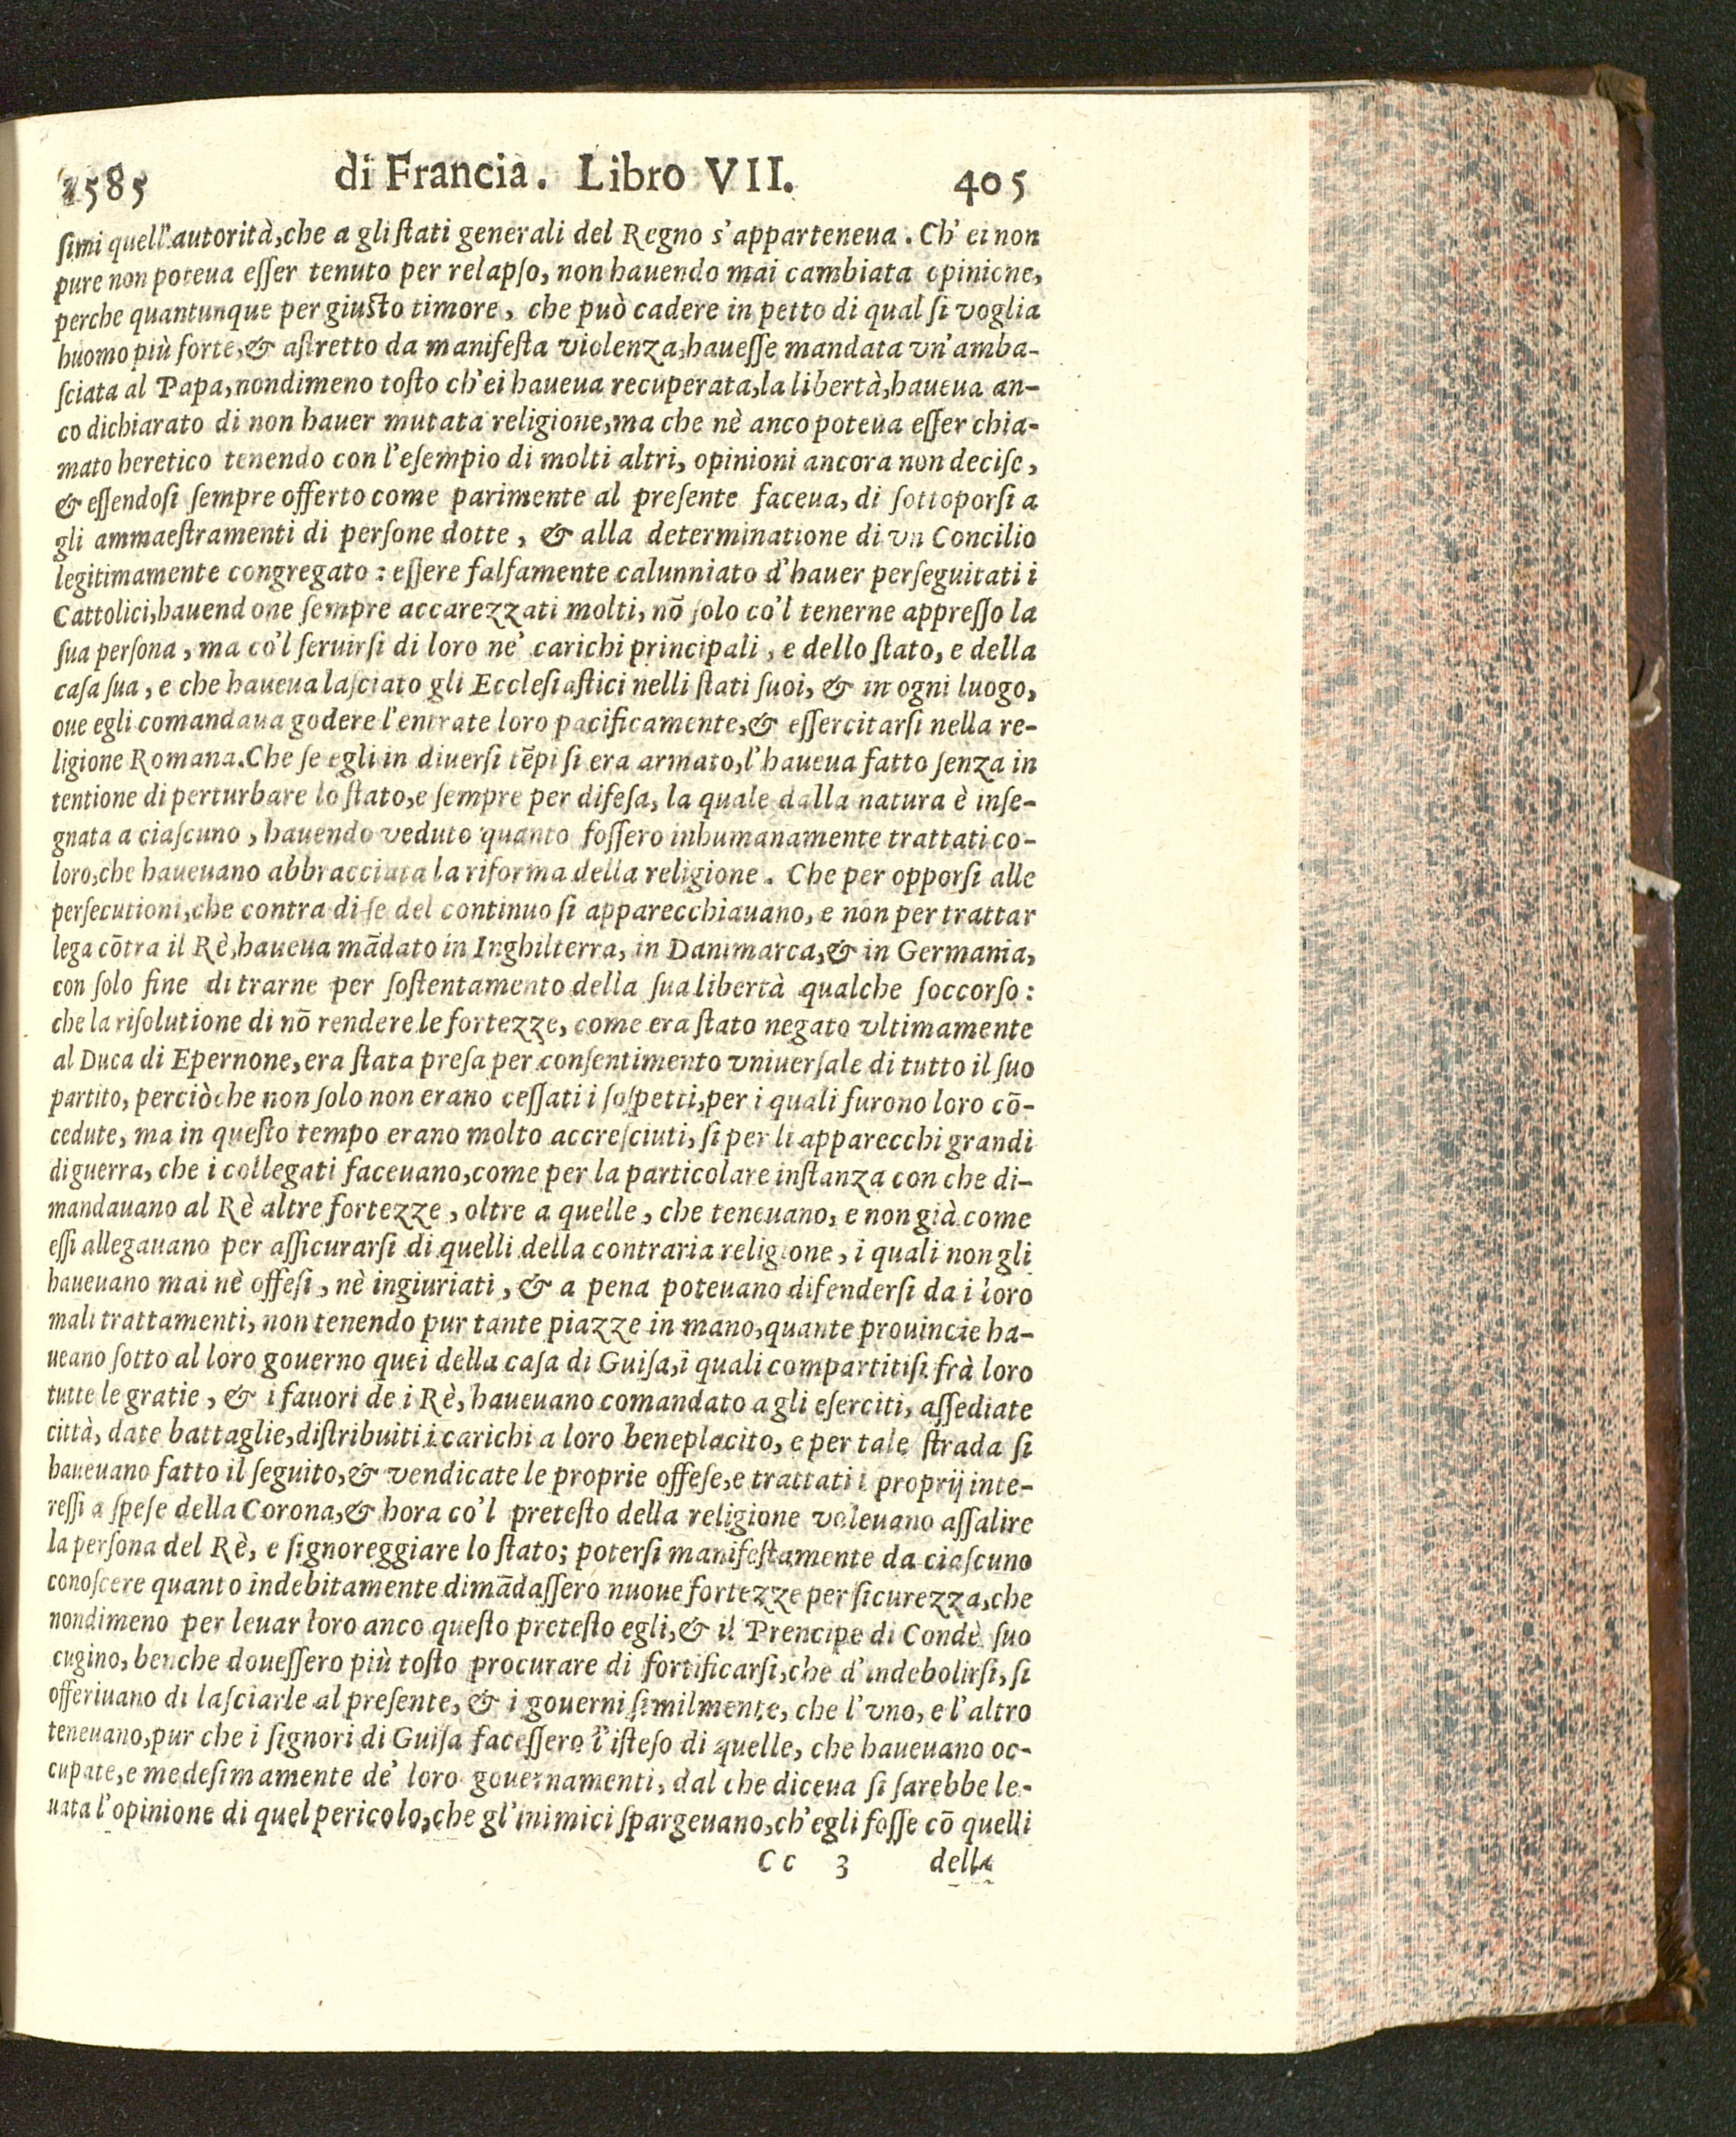 1585 di Francia. Libro VII. 405
ſimi quell'autorità,che a gli ſtati generali del Regno s'apparteneua. Ch' ei non
pure non poteua eſſer tenuto per relapſo, non hauendo mai cambiata opinione,
perche quantunque per giuſto timore, che può cadere in petto di qual ſi voglia
huomo più forte,& aſtretto da manifeſta violenza,haueſſe mandata vn'amba-
ſciata al Papa,nondimeno toſto ch'ei haueua recuperata,la libertà,haueua an-
co dichiarato di non hauer mutata religione,ma che nè anco poteua eſſer chia-
mato heretico tenendo con l'eſempio di molti altri, opinioni ancora non deciſe,
& eſſendoſi ſempre offerto come parimente al preſente faceua, di ſottoporſi a
gli ammaeſtramenti di perſone dotte, & alla determinatione di vn Concilio
legitimamente congregato: eſſere falſamente calunniato d'hauer perſeguitati i
Cattolici,hauend one ſempre accarezzati molti, nō ſolo co'l tenerne appreſſo la
ſua perſona, ma co'l ſeruirſi di loro ne' carichi principali, e dello ſtato, e della
caſa ſua, e che haueua laſciato gli Eccleſiaſtici nelli ſtati ſuoi, & in ogni luogo,
oue egli comandaua godere l'entrate loro pacificamente,& eſſercitarſi nella re-
ligione Romana.Che ſe egli in diuerſi tēpi ſi era armato,l'haueua fatto ſenza in
tentione di perturbare lo ſtato,e ſempre per difeſa, la quale dalla natura è inſe-
gnata a ciaſcuno, hauendo veduto quanto foſſero inhumanamente trattati co-
loro,che haueuano abbracciata la riforma della religione. Che per opporſi alle
perſecutioni,che contra di ſe del continuo ſi apparecchiauano, e non per trattar
lega cōtra il Rè,haueua mādato in Inghilterra, in Danimarca,& in Germania,
con ſolo fine di trarne per ſoſtentamento della ſua libertà qualche ſoccorſo:
che la riſolutione di nō rendere le fortezze, come era ſtato negato vltimamente
al Duca di Epernone, era ſtata preſa per conſentimento vniuerſale di tutto il ſuo
partito, perciòche non ſolo non erano ceſſati i ſoſpetti,per i quali furono loro cō-
cedute, ma in queſto tempo erano molto accreſciuti, ſi per li apparecchi grandi
di guerra, che i collegati faceuano,come per la particolare inſtanza con che di-
mandauano al Rè altre fortezze, oltre a quelle, che teneuano, e non già come
eſſi allegauano per aſſicurarſi di quelli della contraria religione, i quali non gli
haueuano mai nè offeſi, nè ingiuriati, & a pena poteuano difenderſi da i loro
mali trattamenti, non tenendo pur tante piazze in mano,quante prouincie ha-
ueano ſotto al loro gouerno quei della caſa di Guiſa,i quali compartitiſi frà loro
tutte le gratie, & i fauori de i Rè, haueuano comandato a gli eſerciti, aſſediate
città, date battaglie,diſtribuiti i carichi a loro beneplacito, e per tale ſtrada ſi
haueuano fatto il ſeguito,& vendicate le proprie offeſe,e trattati i proprij inte-
reſſi a ſpeſe della Corona,& hora co'l preteſto della religione voleuano aſſalire
la perſona del Rè, e ſignoreggiare lo ſtato; poterſi manifeſtamente da ciaſcuno
conoſcere quanto indebitamente dimādaſſero nuoue fortezze per ſicurezza,che
nondimeno per leuar loro anco queſto preteſto egli,& il Prencipe di Condè ſuo
cugino, benche doueſſero più toſto procurare di fortificarſi,che d'indebolirſi, ſi
offeriuano di laſciarle al preſente, & i gouerni ſimilmente, che l'vno, e l'altro
teneuano,pur che i ſignori di Guiſa faceſſero l'iſteſo di quelle, che haueuano oc-
cupate,e medeſimamente de' loro gouernamenti, dal che diceua ſi ſarebbe le-
uata l'opinione di quel pericolo,che gl'inimici ſpargeuano,ch'egli foſſe cō quelli
Cc 3 della